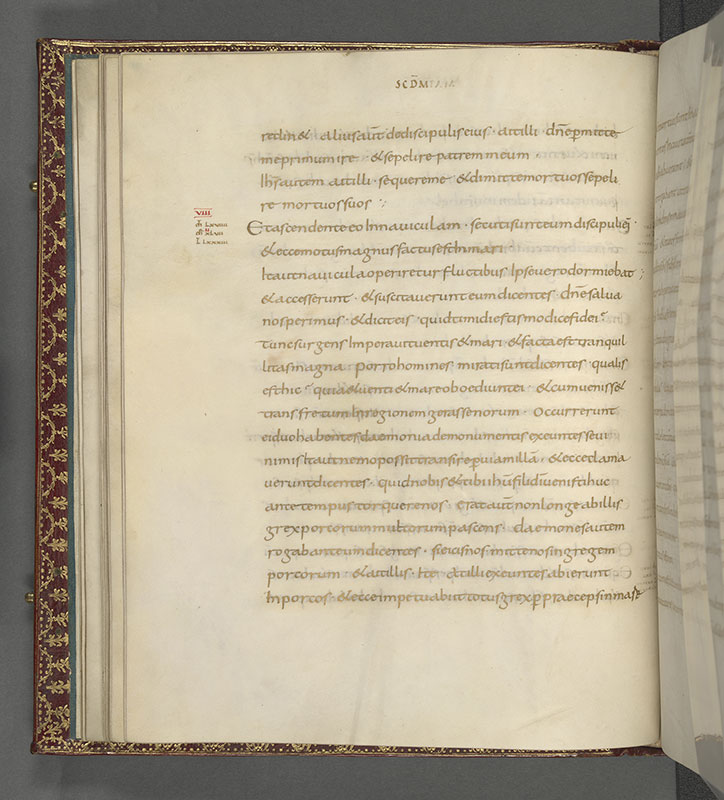 SCD̄M
reclinet alius aut̄ dediscipulis eius · ait illi · dn̄e p̄mitte
me primum ire · & sepelire patrem meum
Ih̄s autem ait illi · sequere me & dimitte mortuos sepeli
re mortuos suos
VIII
Et ascendente eo In naviculam · secuti sunt eum discipuli ei᷒
& ecce motus magnus factus est In mari
Ita ut navicula operiretur fluctibus Ipse vero dormiebat
& accesserunt · & suscitaverunt eum dicentes · dn̄e salva
nos perimus · & dicit eis · quid timidi estis modice fidei
Tunc surgens Imperavit ventis & mari · & facta est tranquil
litas magna · porro homines mirati sunt dicentes · qualis
est hic · quia & venti & mare oboediunt ei · & cum venisset
trans fretum In regionem gerassenorum · Occurrerunt
ei duo habentes daemonia de monumentis exeuntes sevi
nimis Ita ut nemo possit transire p̄ viam illā · & ecce clama
verunt dicentes · quid nobis & tibi ih̄u fili dī venisti huc
ante tempus torquere nos · Erat aut̄ non longe ab illis
grex porcorum multorum pascens · daemones autem
rogabant eum dicentes · si eicis nos mitte nos in gregem
porcorum · & ait illis · Ite · At illi exeuntes abierunt
In porcos · & ecce impetu abiit totus grex p̄ praeceps in mare